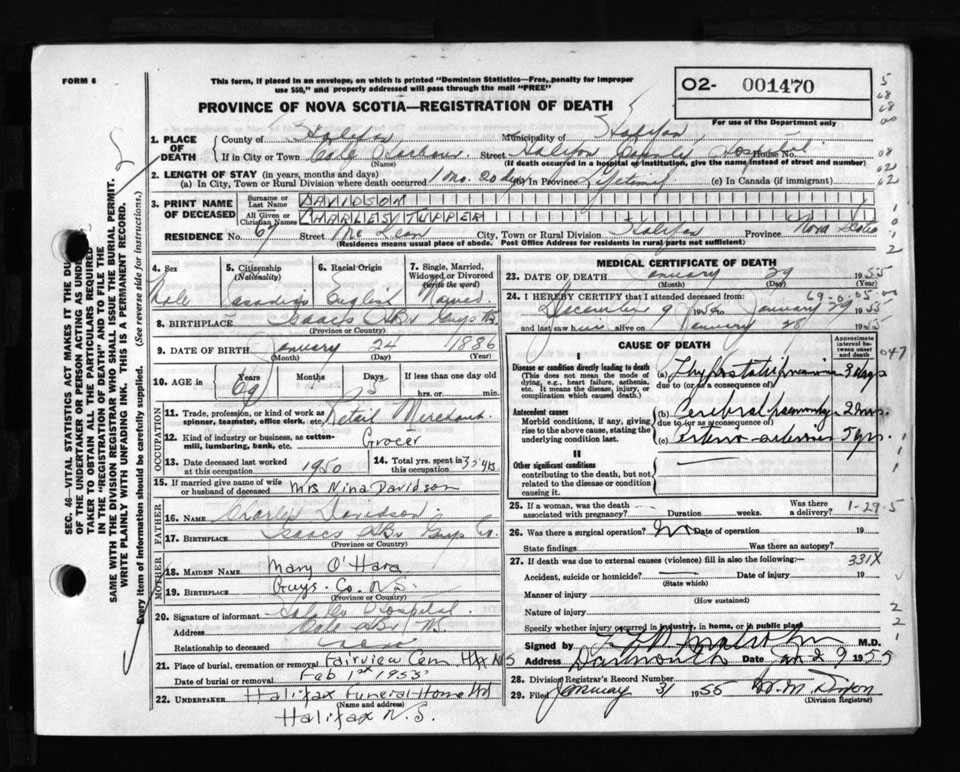 FORM 6
This form, if placed in an envelope, on which is printed "Dominion Statistics—Free, penalty for improper
use $50," and properly addressed will pass through the mail "FREE"
PROVINCE OF NOVA SCOTIA—REGISTRATION OF DEATH
02- 001470
For use of the Department only
1. PLACE OF DEATH
County of Halifax Municipality of Halifax
If in City or Town Cole Harbour Street Halifax County Hospital House No.
(Name) (If death occurred in a hospital or institution, give the name instead of street and number)
2. LENGTH OF STAY (in years, months and days)
(a) In City, Town or Rural Division where death occurred 1 mo. 20 days In Province Lifetime (c) In Canada (if immigrant)
3. PRINT NAME OF DECEASED
Surname or Last Name DAVIDSON
All Given or Christian Names CHARLES TUPPER
RESIDENCE No. 67 Street McLean City, Town or Rural Division Halifax Province Nova Scotia
(Residence means usual place of abode. Post Office Address for residents in rural parts not sufficient)
4. Sex Male
5. Citizenship (Nationality) Canadian
6. Racial Origin English
7. Single, Married, Widowed or Divorced (write the word) Married
8. BIRTHPLACE Isaacs Hbr Guys
(Province or Country)
9. DATE OF BIRTH January 24 1886
(Month) (Day) (Year)
10. AGE in Years 69 Months Days 5 If less than one day old
hrs. or min.
OCCUPATION
11. Trade, profession, or kind of work as spinner, teamster, office clerk, etc. Retail Merchant.
12. Kind of industry or business, as cotton-mill, lumbering, bank, etc. Grocer
13. Date deceased last worked at this occupation 1950
14. Total yrs. spent in this occupation 35 yrs.
15. If married give name of wife or husband of deceased Mrs Nina Davidson
FATHER
16. NAME Charles Davidson
17. BIRTHPLACE Isaacs Hbr Guys Co.
(Province or Country)
MOTHER
18. MAIDEN NAME Mary O'Hara
19. BIRTHPLACE Guys. Co. N.S.
(Province or Country)
20. Signature of informant Hospital
Address Cole Hbr
Relationship to deceased
21. Place of burial, cremation or removal Fairview Cem. Hfx N S
Date of burial or removal Feb 1st 1955
22. UNDERTAKER Halifax Funeral Home Ltd
(Name and address)
Halifax N.S.
MEDICAL CERTIFICATE OF DEATH
23. DATE OF DEATH January 29 1955
(Month) (Day) (Year)
24. I HEREBY CERTIFY that I attended deceased from:
December 9 1954 to January 29 1955
and last saw him alive on January 28 1955
CAUSE OF DEATH
Approximate interval between onset and death
I
Disease or condition directly leading to death
(This does not mean the mode of dying, e.g., heart failure, asthenia, etc. It means the disease, injury, or complication which caused death.)
(a) Hypostatic pneumonia 3 days
due to (or as a consequence of)
Antecedent causes
Morbid conditions, if any, giving rise to the above cause, stating the underlying condition last.
(b) Cerebral 2 mos.
due to (or as a consequence of)
(c) 5 yrs.
II
Other significant conditions
contributing to the death, but not related to the disease or condition causing it.
25. If a woman, was the death associated with pregnancy? Duration weeks. Was there a delivery?
26. Was there a surgical operation? No Date of operation 19
State findings Was there an autopsy?
27. If death was due to external causes (violence) fill in also the following:-
331X
Accident, suicide or homicide? Date of injury 19
(State which)
Manner of injury
(How sustained)
Nature of injury
Specify whether injury occurred in industry, in home, or in public place
Signed by M.D.
Address Dartmouth Date Jan 29 1955
28. Division Registrar's Record Number
29. Filed January 31 1955
(Division Registrar)
SEC. 46- VITAL STATISTICS ACT MAKES IT THE DUTY
OF THE UNDERTAKER OR PERSON ACTING AS UNDER-
TAKER TO OBTAIN ALL THE PARTICULARS REQUIRED
IN THE "REGISTRATION OF DEATH" AND TO FILE THE
SAME WITH THE DIVISION REGISTRAR WHO SHALL ISSUE THE BURIAL PERMIT.
WRITE PLAINLY WITH UNFADING INK. THIS IS A PERMANENT RECORD.
Every item of information should be carefully supplied. (See reverse side for instructions.)